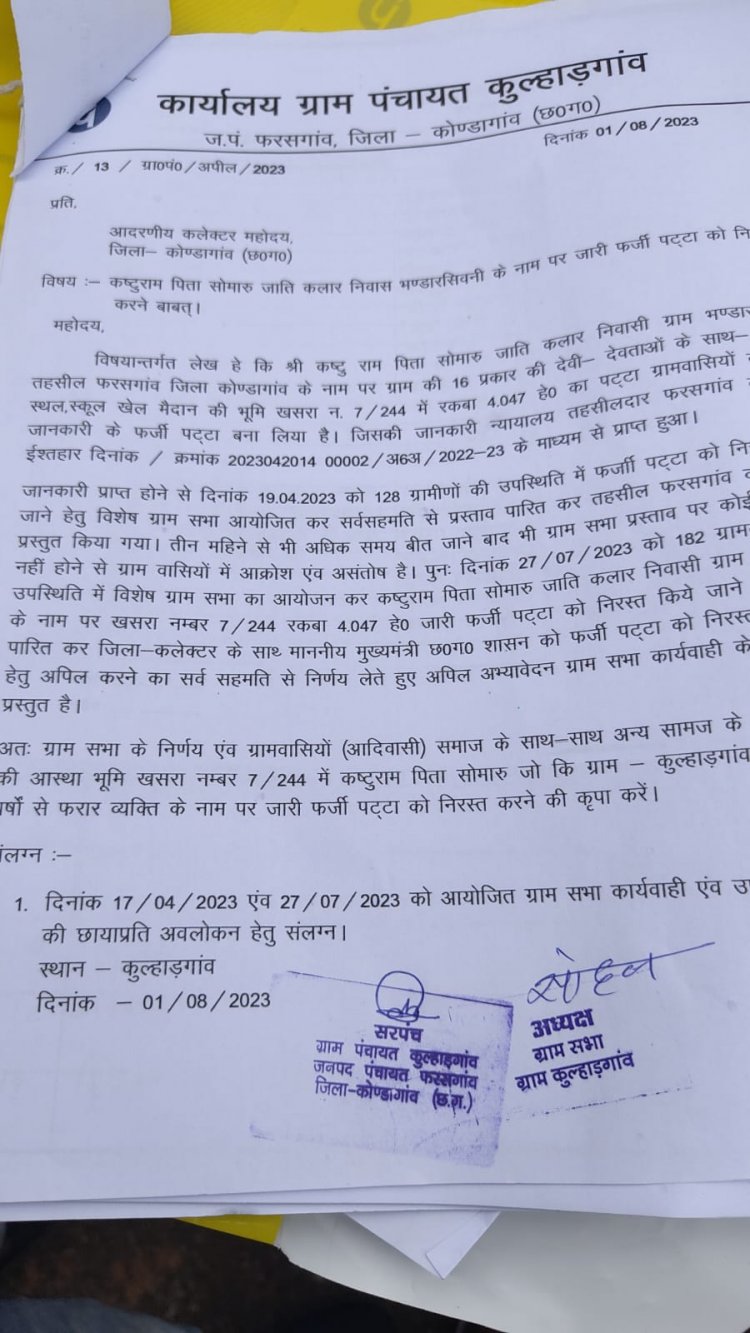 कार्यालय ग्राम पंचायत कुल्हाड़गांव
ज.पं. फरसगांव, जिला – कोण्डागांव (छ0ग0)
दिनांक 01/08/2023
क्र./ 13 / ग्रा0पं0/अपील/2023
प्रति,
आदरणीय कलेक्टर महोदय,
जिला– कोण्डागांव (छ0ग0)
विषय :– कष्टुराम पिता सोमारु जाति कलार निवास भण्डारसिवनी के नाम पर जारी फर्जी पट्टा को
करने बाबत्।
महोदय,
विषयान्तर्गत लेख हे कि श्री कष्टु राम पिता सोमारु जाति कलार निवासी ग्राम
तहसील फरसगांव जिला कोण्डागांव के नाम पर ग्राम की 16 प्रकार की देवी– देवताओं के साथ–
स्थल,स्कूल खेल मैदान की भूमि खसरा न. 7/244 में रकबा 4.047 हे0 का पट्टा ग्रामवासियों
जानकारी के फर्जी पट्टा बना लिया है। जिसकी जानकारी न्यायालय तहसीलदार फरसगांव
ईश्तहार दिनांक / क्रमांक 2023042014 00002/अ6अ/2022–23 के माध्यम से प्राप्त हुआ।
जानकारी प्राप्त होने से दिनांक 19.04.2023 को 128 ग्रामीणों की उपस्थिति में फर्जाी पट्टा को
जाने हेतु विशेष ग्राम सभा आयोजित कर सर्वसहमति से प्रस्ताव पारित कर तहसील फरसगांव
प्रस्तुत किया गया। तीन महिने से भी अधिक समय बीत जाने बाद भी ग्राम सभा प्रस्ताव पर कोई
नहीं होने से ग्राम वासियों में आक्रोश एंव असंतोष है। पुनः दिनांक 27/07/2023 को 182
उपस्थिति में विशेष ग्राम सभा का आयोजन कर कष्टुराम पिता सोमारु जाति कलार निवासी ग्राम
के नाम पर खसरा नम्बर 7/244 रकबा 4.047 हे0 जारी फर्जी पट्टा को निरस्त किये जाने
पारित कर जिला–कलेक्टर के साथ माननीय मुख्यमंत्री छ0ग0 शासन को फर्जी पट्टा को निरस्त
हेतु अपिल करने का सर्व सहमति से निर्णय लेते हुए अपिल अभ्यावेदन ग्राम सभा कार्यवाही के
प्रस्तुत है।
अतः ग्राम सभा के निर्णय एंव ग्रामवासियों (आदिवासी) समाज के साथ–साथ अन्य सामज के
की आस्था भूमि खसरा नम्बर 7/244 में कष्टुराम पिता सोमारु जो कि ग्राम – कुल्हाड़गांव
से फरार व्यक्ति के नाम पर जारी फर्जी पट्टा को निरस्त करने की कृपा करें।
:–
1. दिनांक 17/04/2023 एंव 27/07/2023 को आयोजित ग्राम सभा कार्यवाही एंव
की छायाप्रति अवलोकन हेतु संलग्न।
स्थान – कुल्हाड़गांव
दिनांक – 01/08/2023
सरपंच
ग्राम पंचायत कुल्हाड़गांव
जनपद पंचायत फरसगांव
जिला-कोण्डागांव (छ.ग.)
अध्यक्ष
ग्राम सभा
ग्राम कुल्हाड़गांव